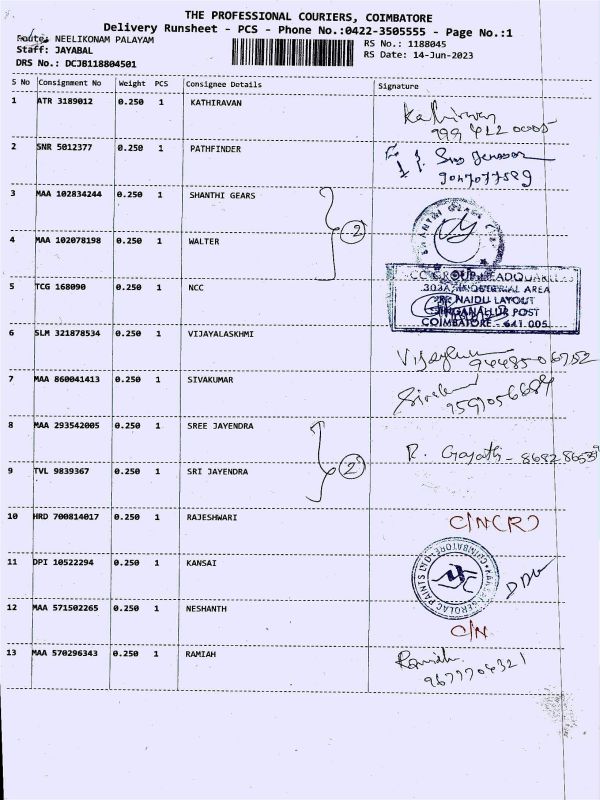 THE PROFESSIONAL COURIERS, COIMBATORE
Delivery Runsheet - PCS - Phone No.:0422-3505555 - Page No.:1
Route: NEELIKONAM PALAYAM
RS No.: 1188045
Staff: JAYABAL
RS Date: 14-Jun-2023
DRS No.: DCJB118804501
S No Consignment No Weight PCS Consignee Details Signature
1 ATR 3189012 0.250 1 KATHIRAVAN Kathiravan
2 SNR 5012377 0.250 1 PATHFINDER
3 MAA 102834244 0.250 1 SHANTHI GEARS
2
4 MAA 102078198 0.250 1 WALTER
5 TCG 168090 0.250 1 NCC
NCC GROUP HEADQUARTERS
LAYOUT
POST
COIMBATORE - 641 005
6 SLM 321878534 0.250 1 VIJAYALASKHMI
7 MAA 860041413 0.250 1 SIVAKUMAR
8 MAA 293542005 0.250 1 SREE JAYENDRA R. Gayathi -
2
9 TVL 9839367 0.250 1 SRI JAYENDRA
10 HRD 700814017 0.250 1 RAJESHWARI C/N(R)
11 DPI 10522294 0.250 1 KANSAI
12 MAA 571502265 0.250 1 NESHANTH C/N
13 MAA 570296343 0.250 1 RAMIAH Ramiah
9677704321